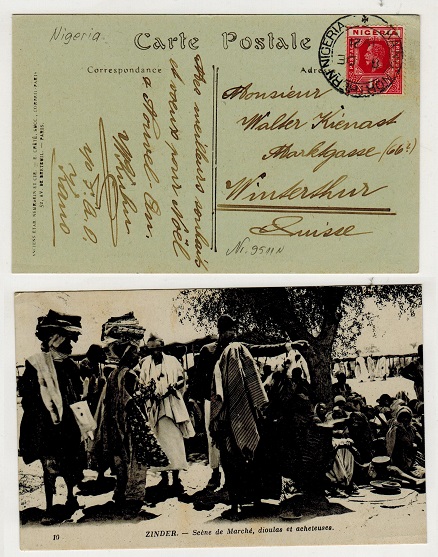 Nigeria.
Carte Postale
Correspondance
Adre
NIGERIA
POSTAGE
NIGERIA
Monsieur
Walter Kienast
Marktgasse (66a)
Winterthur
Suisse
Nr. 9511N
Mes meilleurs souhaits
et voeux pour Noël
& Nouvel-An.
Kano
ZINDER. — Scène de Marché, dioulas et acheteuses.
10